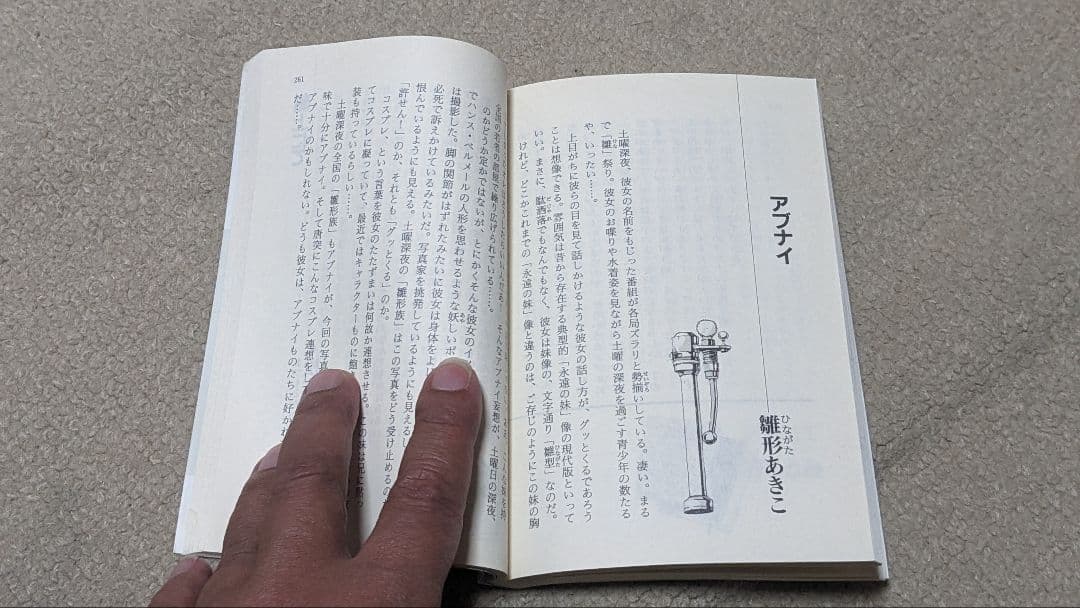 アブナイ
雛形あきこ
ひながた
土曜深夜、彼女の名前をもじった番組が各局ズラリと勢揃いしている。凄い。まる
せいぞろ
で「雛」祭り。彼女のお喋りや水着姿を見ながら土曜の深夜を過ごす青少年の数たる
ひな
や、いったい……。
上目がちに彼らの目を見て話しかけるような彼女の話し方が、グッとくるであろう
ことは想像できる。雰囲気は昔から存在する典型的「永遠の妹」像の現代版といって
いい。まさに、駄洒落でもなんでもなく、彼女は妹像の、文字通り「雛型」なのだ。
だじゃれ
ひながた
けれど、どこかこれまでの「永遠の妹」像と違うのは、ご存じのようにこの妹の胸
そんなアブナイ妄想が、土曜日の深夜、
全国の若者の部屋で繰り広げられている……。
のかどうか定かではないが、とにかくそんな彼女のイ
でハンス・ベルメールの人形を思わせるような妖しいポ
あや
は撮影した。脚の関節がはずれたみたいに彼女は身体をよ
必死で訴えかけているみたいだ。写真家を挑発しているようにも見えるし
恨んでいるようにも見える。土曜深夜の「雛形族」はこの写真をどう受け止めるの
「許せん！」のか、それとも「グッとくる」のか。
コスプレ、という言葉を彼女のたたずまいは何故か連想させる。この妹は兄に黙っ
てコスプレに凝っていて、最近ではキャラクターものに飽
装も持っているらしい……。
土曜深夜の全国の「雛形族」もアブナイが、今回の写真
味で十分にアブナイ。そして唐突にこんなコスプレ連想をし
アブナイのかもしれない。どうも彼女は、アブナイものたちに好かれ
だ……。
261